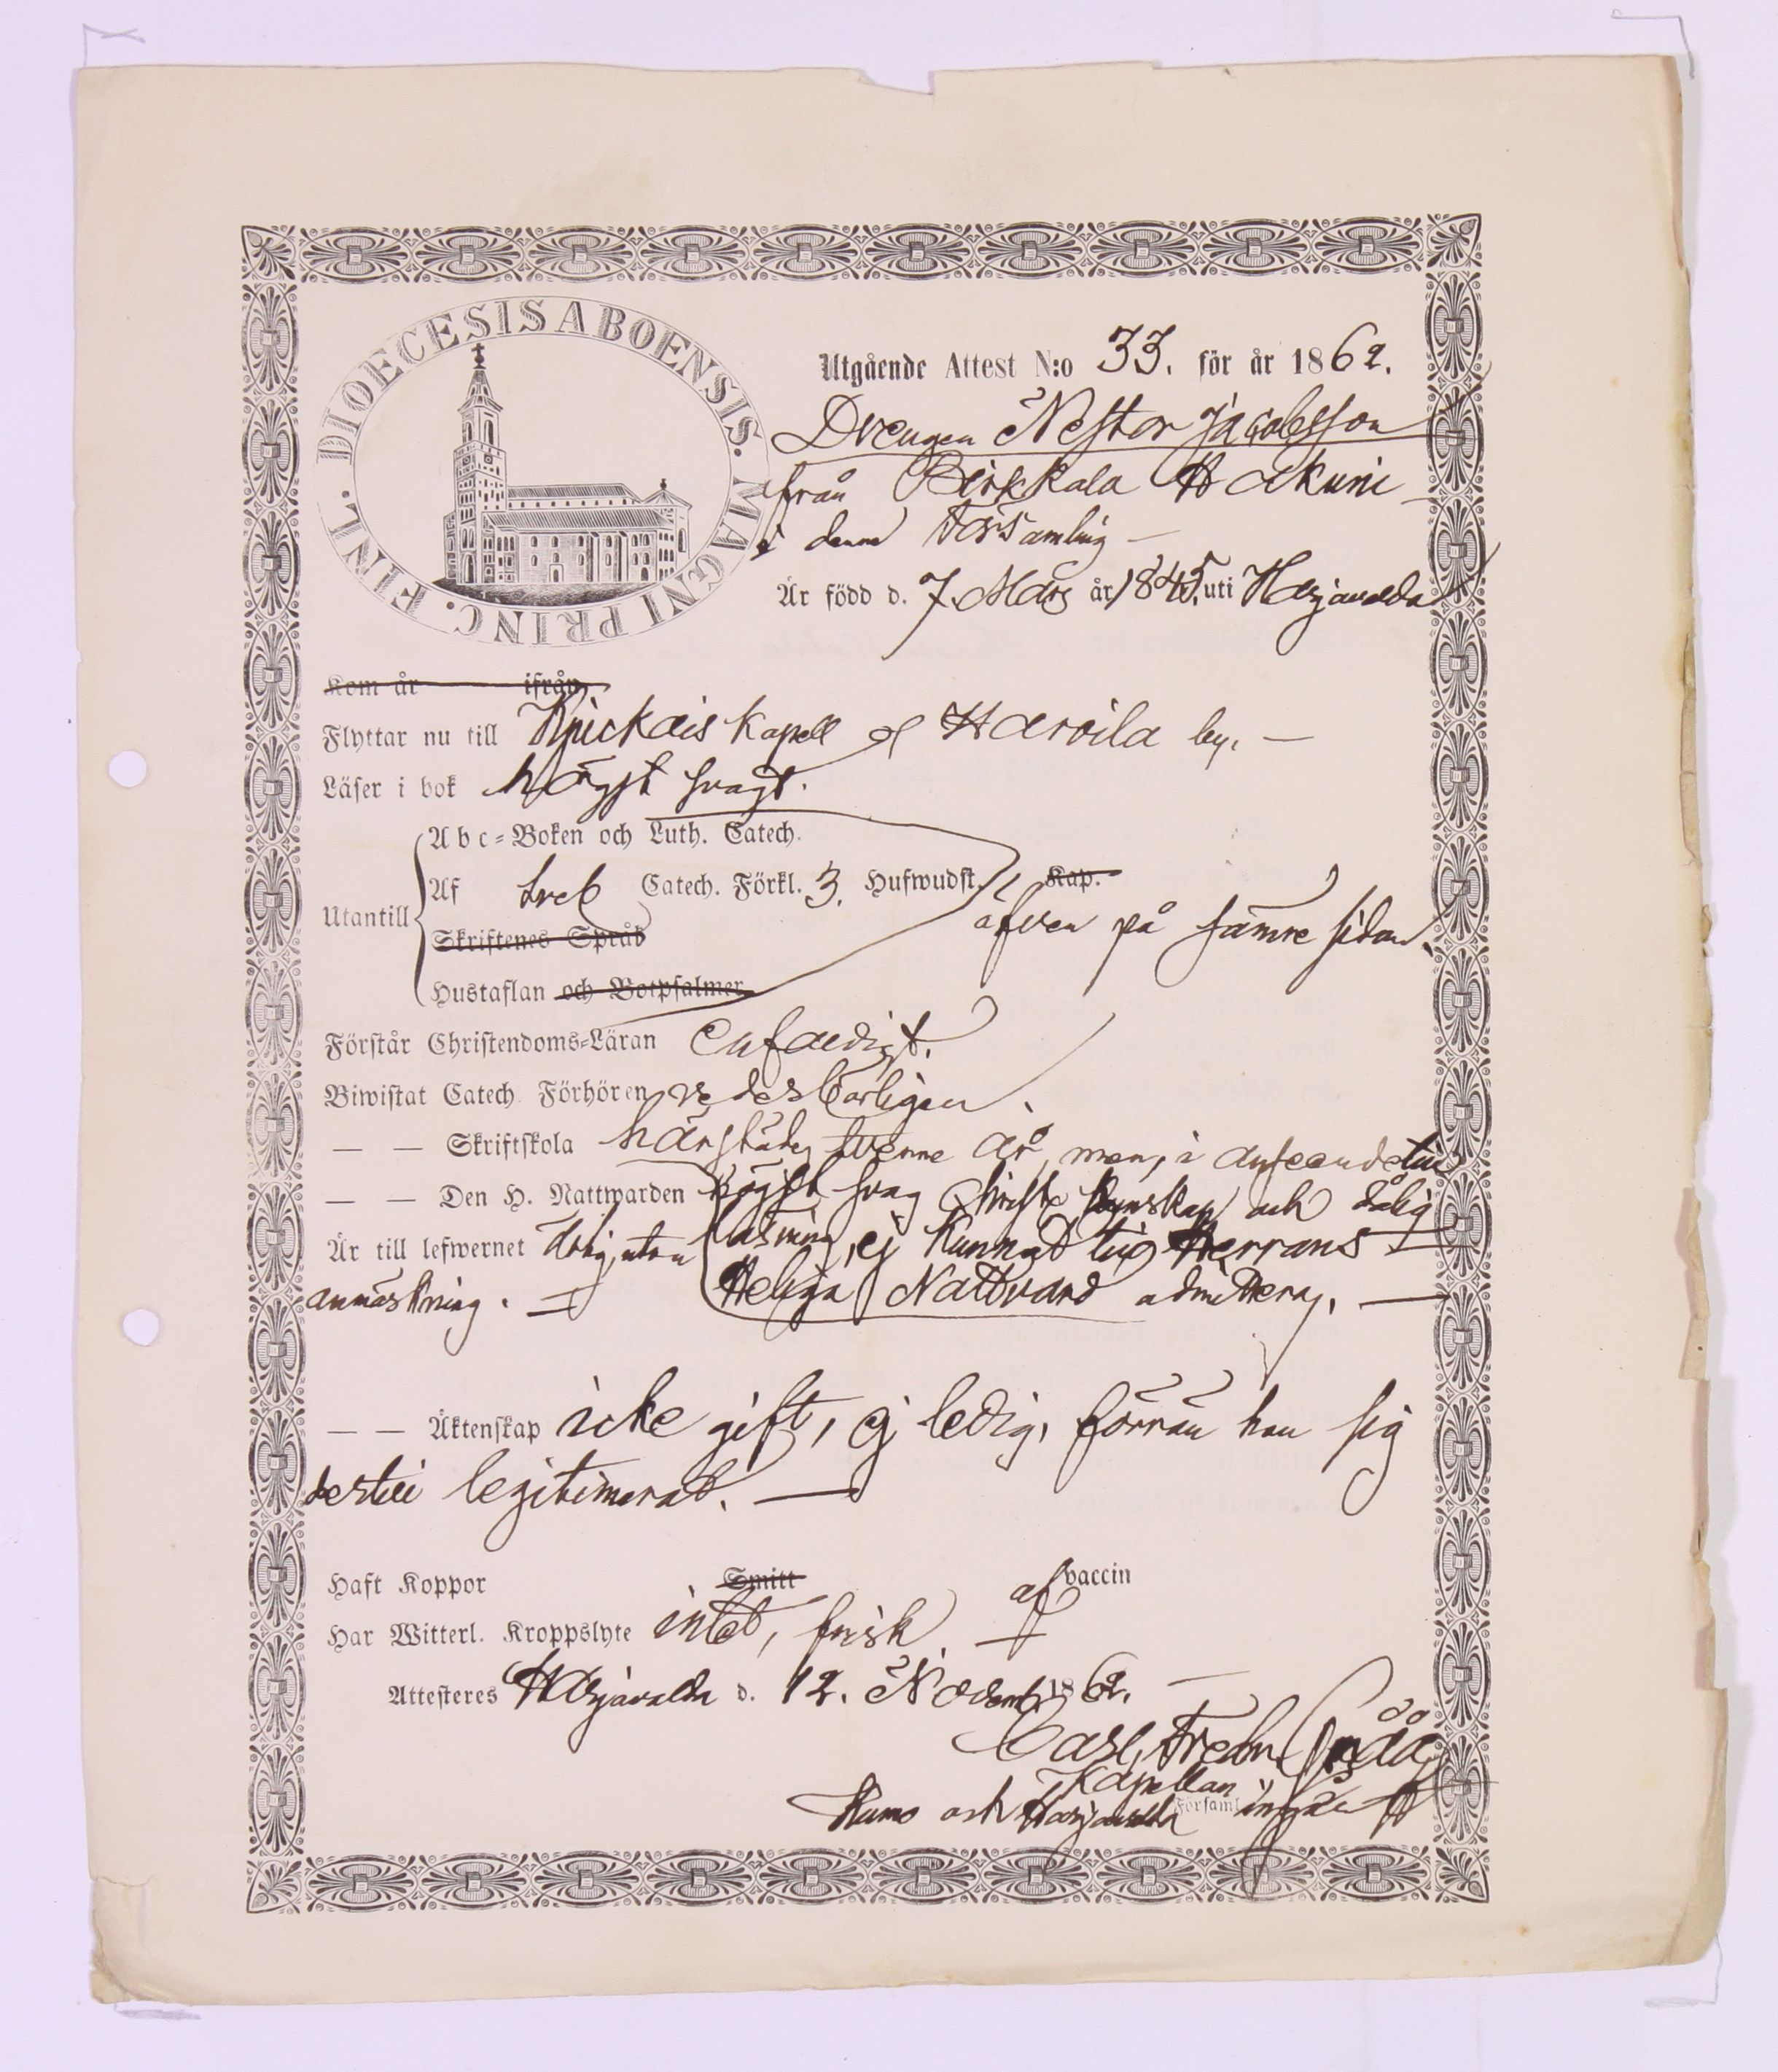 DIOECESIS ABOENSIS. MAGNI PRINC. FINL.
Utgående Attest N:o 33. för år 1862.
Drengen Nestor Jacobsson
från Birkkala Hakuni
i denna Församling —
Är född d. 7. Mars år 1845. uti Harjavalda
Kom år ifrån
Flyttar nu till Kjuckais Kapell och Harvila by. —
Läser i bok högst svagt.
Abc-Boken och Luth. Catech.
Af Catech. Förkl. 3. Hufwudst. Kap.
Utantill
äfven på samre sidan.
Skriftenes Språk
Hustaflan och Botpsalmer
Förstår Christendoms-Läran enfaldigt.
Biwistat Catech. Förhören vederbörligen.
— — Skriftskola härstädes tvenne år, men, i anseende till
— — Den H. Nattwarden högst svag Christe kunskap och dålig
Är till lefwernet ärlig, utan läsning, ej kunnat till Herrans
anmärkning. — Heliga Nattvard admitteras. —
— — Äktenskap icke gift, ej ledig, förrän han sig
dertill legitimerat. —
Haft Koppor Smitt af vaccin
Har Witterl. Kroppslyte intet, frisk.
Attesteres Harjavalda d. 12. Novemb. 1862. —
Carl Fredr.
Kapellan
Kumo och Harjavalda Församl